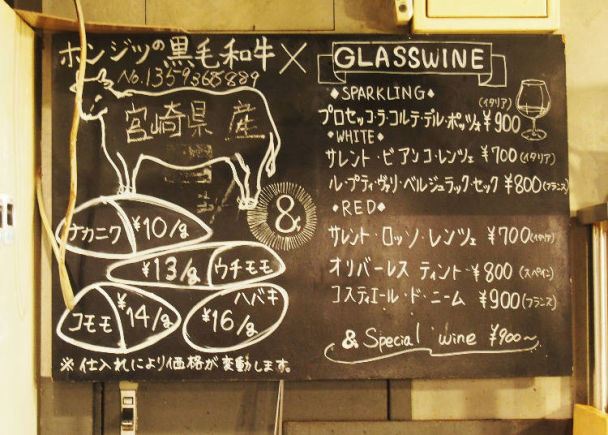 ホンジツの黒毛和牛 ×
No.1359368889
宮崎県 産
&
ナカニク ¥10/g
¥13/g ウチモモ
コモモ ¥14/g
ハバキ
¥16/g
※仕入れにより価格が変動します。
GLASSWINE
◆SPARKLING◆
(イタリア)
プロセッコ・ラ・コルテ・デル・ポッツェ ¥900
◆WHITE◆
サレント・ビアンコ・レンツェ ¥700(イタリア)
ル・プティ・ヴァリ・ベルジュラック・セック ¥800(フランス)
◆RED◆
サレント・ロッソ・レンツェ ¥700(イタリア)
オリバーレス ティント ¥800(スペイン)
コスティエール・ド・ニーム ¥900(フランス)
& Special wine ¥900~